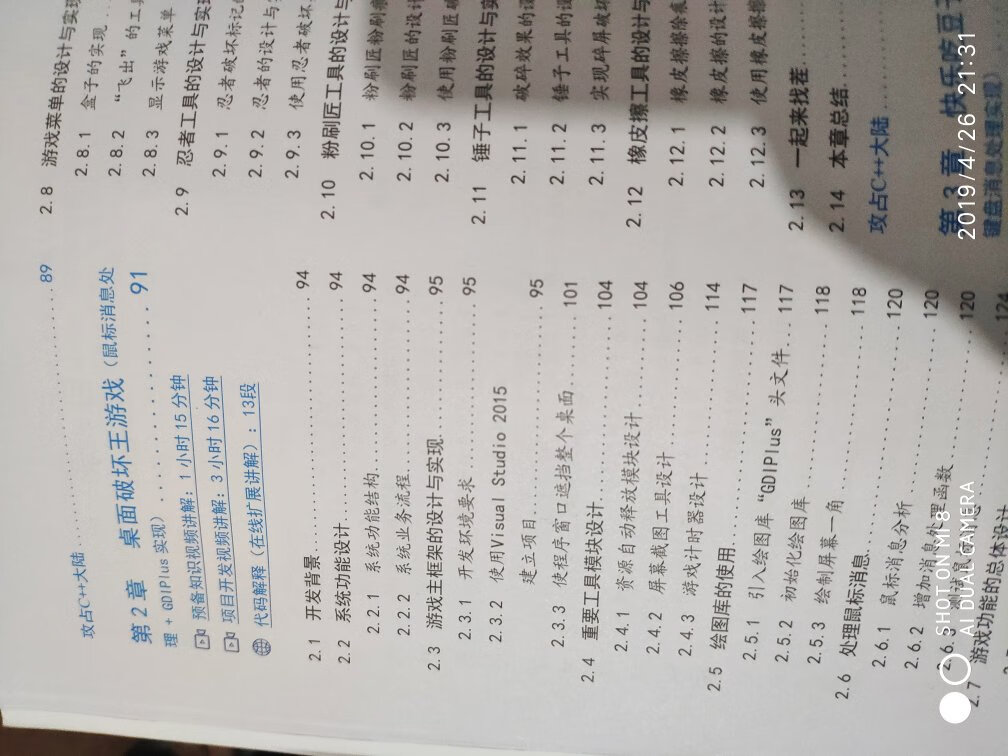 攻占C++大陆 89
第2章 桌面破坏王游戏（鼠标消息处
理 + GDIPlus 实现） 91
预备知识视频讲解：1小时15分钟
项目开发视频讲解：3小时16分钟
代码解释（在线扩展讲解）：13段
2.1 开发背景 94
2.2 系统功能设计 94
2.2.1 系统功能结构 94
2.2.2 系统业务流程 94
2.3 游戏主框架的设计与实现 95
2.3.1 开发环境要求 95
2.3.2 使用Visual Studio 2015
建立项目 95
2.3.3 使程序窗口遮挡整个桌面 101
2.4 重要工具模块设计 104
2.4.1 资源自动释放模块设计 104
2.4.2 屏幕截图工具设计 106
2.4.3 游戏计时器设计 114
2.5 绘图库的使用 117
2.5.1 引入绘图库“GDIPlus”头文件 117
2.5.2 初始化绘图库 118
2.5.3 绘制屏幕一角 118
2.6 处理鼠标消息 120
2.6.1 鼠标消息分析 120
2.6.2 增加消息处理函数 120
2.6.3 测试鼠
2.7 游戏功能的总体设计
2.8 游戏菜单的设计与实现
2.8.1 盒子的实现
2.8.2 “飞出”的工具
2.8.3 显示游戏菜单
2.9 忍者工具的设计与实现
2.9.1 忍者破坏标记的
2.9.2 忍者的设计与
2.9.3 使用忍者破坏
2.10 粉刷匠工具的设计与
2.10.1 粉刷匠粉刷
2.10.2 粉刷匠的设计
2.10.3 使用粉刷匠破
2.11 锤子工具的设计与实
2.11.1 破碎效果的设
2.11.2 锤子工具的设
2.11.3 实现碎屏破坏
2.12 橡皮擦工具的设计与
2.12.1 橡皮擦擦痕
2.12.2 橡皮擦的设计
2.12.3 使用橡皮擦擦
2.13 一起来找茬
2.14 本章总结
攻占C++大陆
第3章 快乐吃豆子
键盘消息处理实现）
SHOT ON MI 8
AI DUAL CAMERA
2019/4/26 21:31